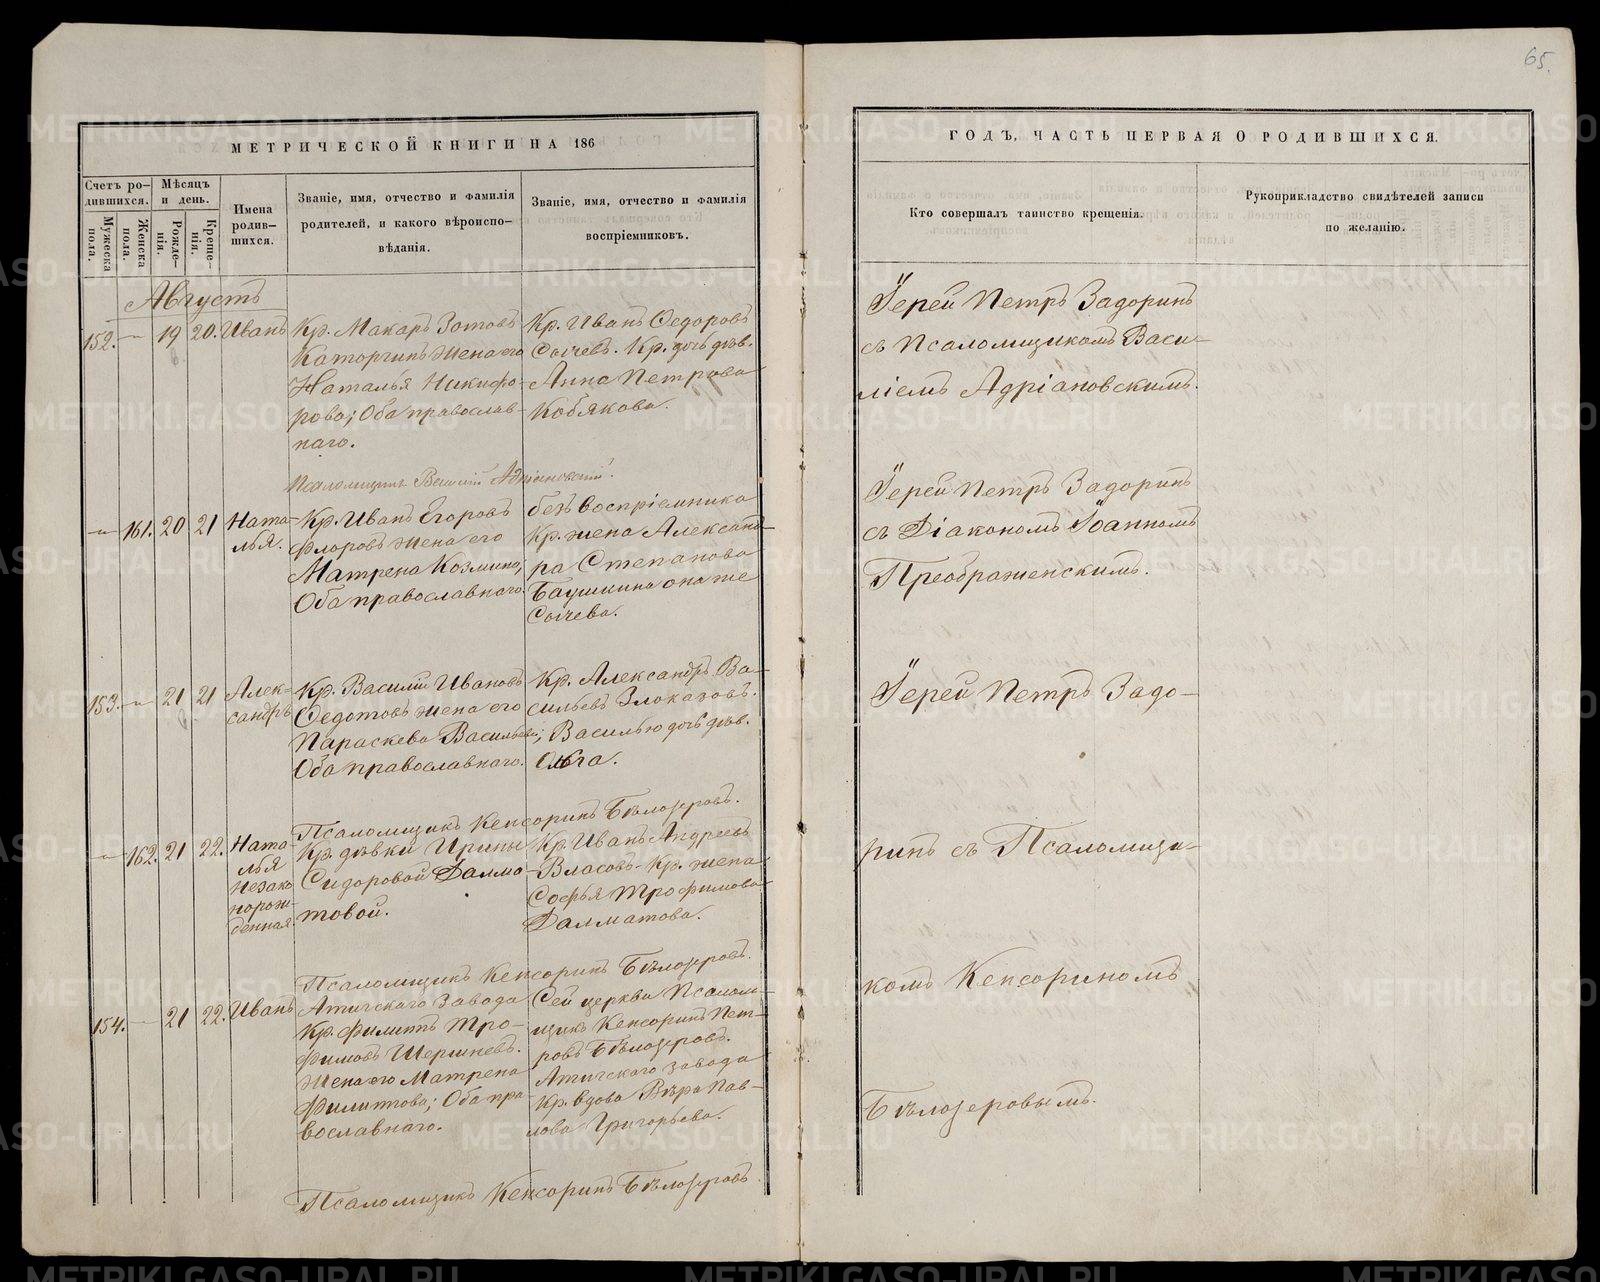 65.
МЕТРИЧЕСКОЙ КНИГИ НА 186
ГОДЪ, ЧАСТЬ ПЕРВАЯ О РОДИВШИХСЯ.
Счетъ ро-
дившихся.
Мужеска
пола.
Женска
пола.
Мѣсяцъ
и день.
Рожде-
нія.
Креще-
нія.
Имена
родив-
шихся.
Званіе, имя, отчество и фамилія
родителей, и какого вѣроиспо-
вѣданія.
Званіе, имя, отчество и фамилія
воспріемниковъ.
Кто совершалъ таинство крещенія.
Рукоприкладство свидѣтелей записи
по желанію.
Августъ
152. — 19 20. Иванъ
Кр. Макаръ Зотовъ
Каторгинъ жена его
Наталья Никифо-
рова; Оба православ-
наго.
Кр. Иванъ Ѳедоровъ
Сычевъ. Кр. дочь дѣв.
Анна Петрова
Кобякова.
Іерей Петръ Задоринъ
съ Псаломщикомъ Васи-
ліемъ Адріановскимъ.
Псаломщикъ Василій Адріановскій.
— 161. 20 21 Ната-
лья.
Кр. Иванъ Егоровъ
Флоровъ жена его
Матрена Козмина,
Оба православнаго.
безъ воспріемника
Кр. жена Александ-
ра Степанова
Баушкина она же
Сычева.
Іерей Петръ Задоринъ
съ Діакономъ Іоанномъ
Преображенскимъ.
153. — 21 21 Алек-
сандръ
Кр. Василій Ивановъ
Ѳедотовъ жена его
Параскева Васильева;
Оба православнаго.
Кр. Александръ Ва-
сильевъ Злоказовъ.
Василью дочь дѣв.
Ольга.
Іерей Петръ Задо-
Псаломщикъ Кенсоринъ Бѣлозеровъ.
— 162. 21 22. Ната-
лья
незако
норож-
денная.
Кр. дѣвки Ирины
Сидоровой Далма-
товой.
Кр. Иванъ Андреевъ
Власовъ - Кр. жена
Софья Трофимова
Далматова.
ринъ съ Псаломщи-
Псаломщикъ Кенсоринъ Бѣлозеровъ.
154. — 21 22. Иванъ
Атигскаго Завода
Кр. Филиппъ Тро-
фимовъ Шершневъ.
Жена его Матрена
Филиппова; Оба пра-
вославнаго.
Сей церкви Псалом-
щикъ Кенсоринъ Пет-
ровъ Бѣлозеровъ.
Атигскаго завода
Кр. вдова Вѣра Пав-
лова Григорьева.
комъ Кенсориномъ
Бѣлозеровымъ.
Псаломщикъ Кенсоринъ Бѣлозеровъ
METRIKI.GASO-URAL.RU